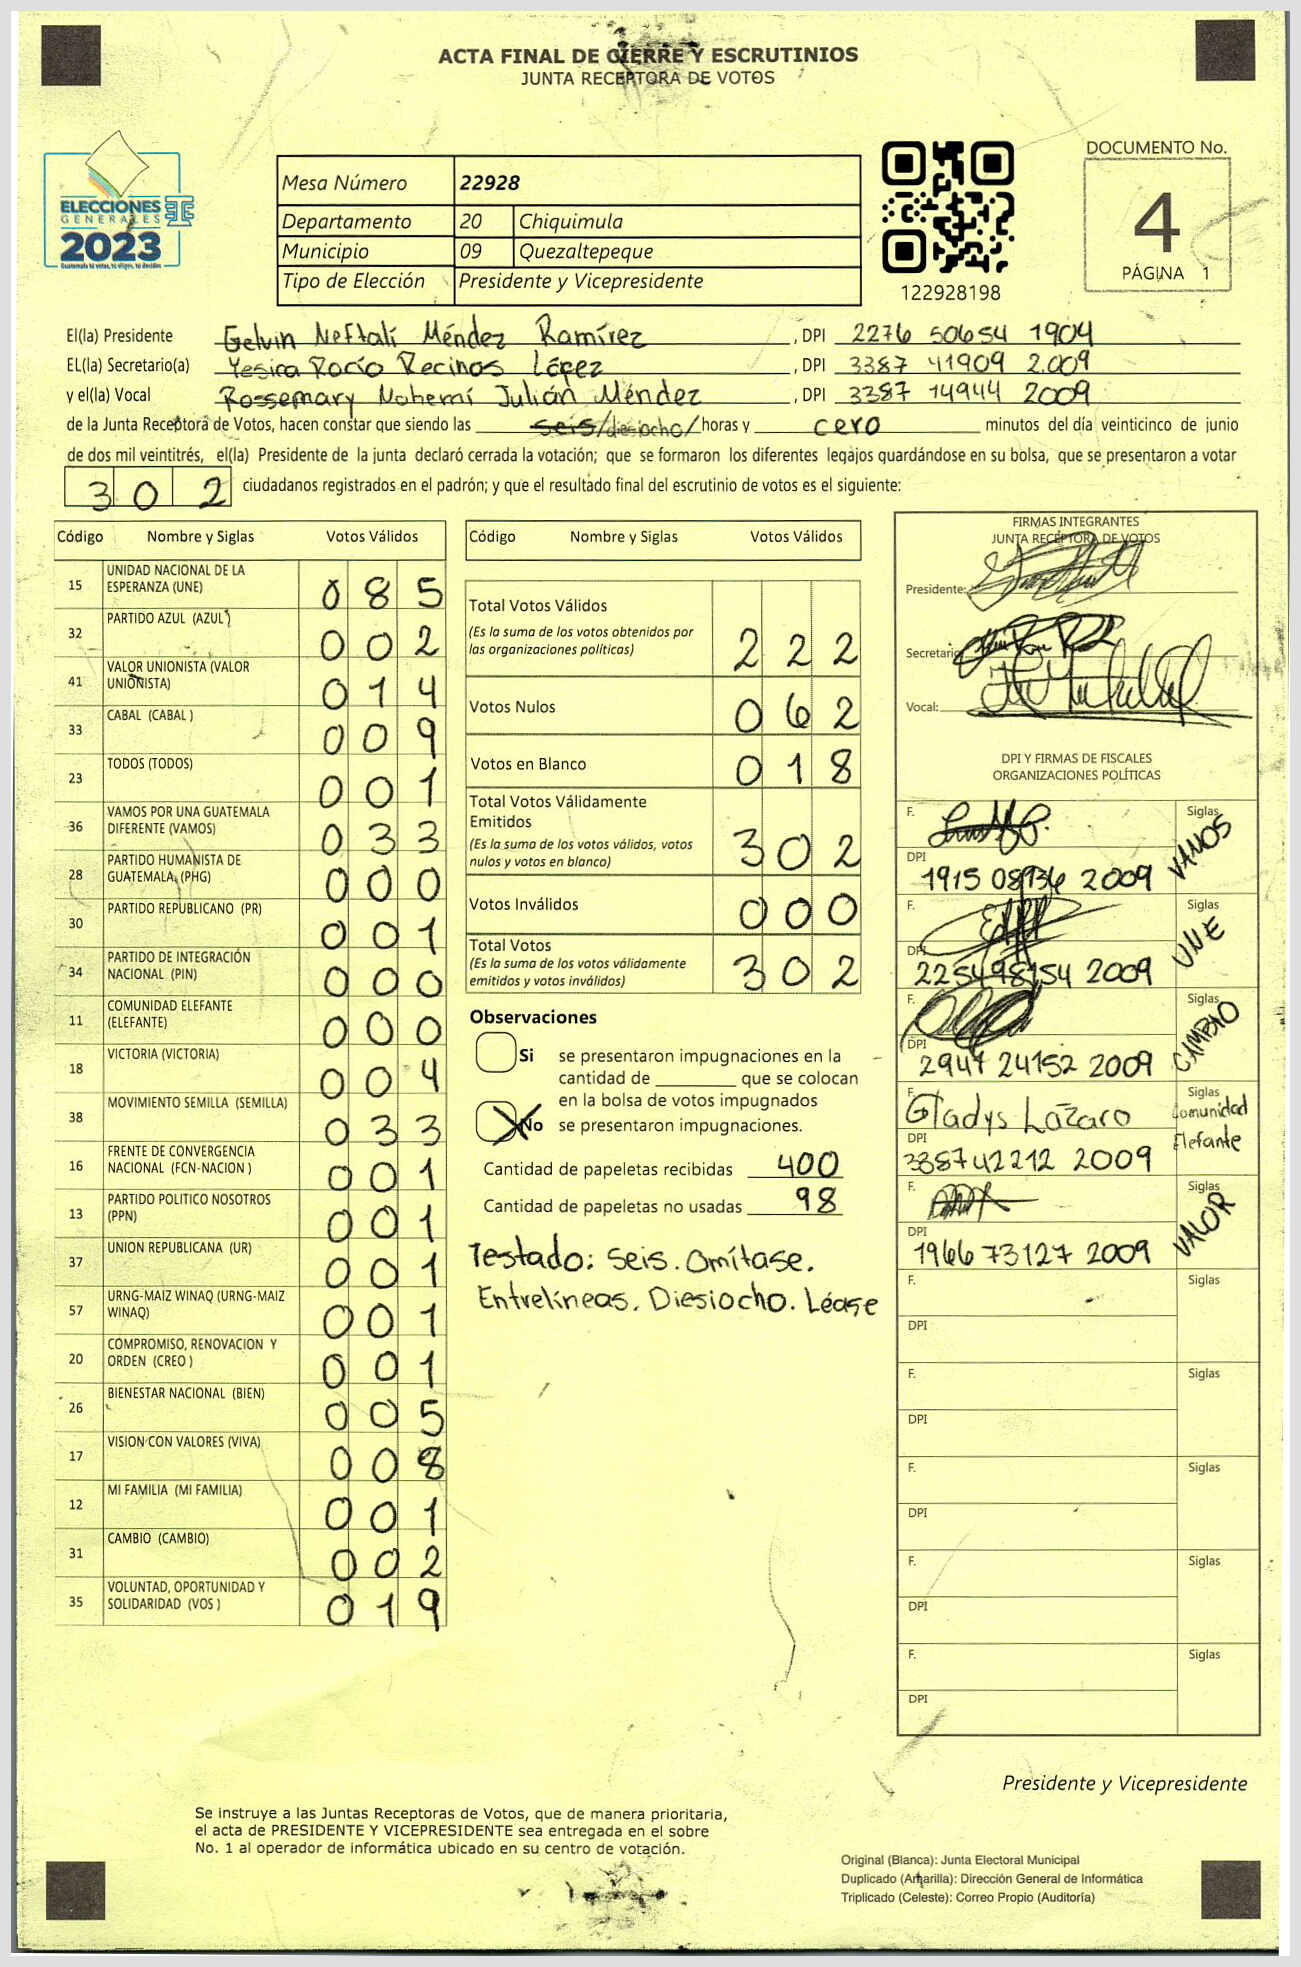 ACTA FINAL DE CIERRE Y ESCRUTINIOS
JUNTA RECEPTORA DE VOTOS
ELECCIONES
GENERALES
2023
Guatemala tú votas, tú eliges, tú decides
Mesa Número 22928
Departamento 20 Chiquimula
Municipio 09 Quezaltepeque
Tipo de Elección Presidente y Vicepresidente
122928198
DOCUMENTO No.
4
PÁGINA 1
El(la) Presidente Gelvin Neftalí Méndez Ramírez , DPI 2276 50654 1904
EL(la) Secretario(a) Yesica Rocío Recinos López , DPI 3387 41909 2.009
y el(la) Vocal Rossemary Nohemí Julián Méndez , DPI 3387 14944 2009
de la Junta Receptora de Votos, hacen constar que siendo las seis/diesiocho/ horas y cero minutos del día veinticinco de junio
de dos mil veintitrés, el(la) Presidente de la junta declaró cerrada la votación; que se formaron los diferentes legajos guardándose en su bolsa, que se presentaron a votar
302 ciudadanos registrados en el padrón; y que el resultado final del escrutinio de votos es el siguiente:
Código Nombre y Siglas Votos Válidos
15 UNIDAD NACIONAL DE LA ESPERANZA (UNE) 085
32 PARTIDO AZUL (AZUL) 002
41 VALOR UNIONISTA (VALOR UNIONISTA) 014
33 CABAL (CABAL ) 009
23 TODOS (TODOS) 001
36 VAMOS POR UNA GUATEMALA DIFERENTE (VAMOS) 033
28 PARTIDO HUMANISTA DE GUATEMALA (PHG) 000
30 PARTIDO REPUBLICANO (PR) 001
34 PARTIDO DE INTEGRACIÓN NACIONAL (PIN) 000
11 COMUNIDAD ELEFANTE (ELEFANTE) 000
18 VICTORIA (VICTORIA) 004
38 MOVIMIENTO SEMILLA (SEMILLA) 033
16 FRENTE DE CONVERGENCIA NACIONAL (FCN-NACION ) 001
13 PARTIDO POLITICO NOSOTROS (PPN) 001
37 UNION REPUBLICANA (UR) 001
57 URNG-MAIZ WINAQ (URNG-MAIZ WINAQ) 001
20 COMPROMISO, RENOVACION Y ORDEN (CREO ) 001
26 BIENESTAR NACIONAL (BIEN) 005
17 VISION CON VALORES (VIVA) 008
12 MI FAMILIA (MI FAMILIA) 001
31 CAMBIO (CAMBIO) 002
35 VOLUNTAD, OPORTUNIDAD Y SOLIDARIDAD (VOS ) 019
Código Nombre y Siglas Votos Válidos
Total Votos Válidos 222
(Es la suma de los votos obtenidos por
las organizaciones políticas)
Votos Nulos 062
Votos en Blanco 018
Total Votos Válidamente
Emitidos 302
(Es la suma de los votos válidos, votos
nulos y votos en blanco)
Votos Inválidos 000
Total Votos 302
(Es la suma de los votos válidamente
emitidos y votos inválidos)
Observaciones
Si se presentaron impugnaciones en la
cantidad de ________ que se colocan
en la bolsa de votos impugnados
No se presentaron impugnaciones.
Cantidad de papeletas recibidas 400
Cantidad de papeletas no usadas 98
Testado: seis. Omítase.
Entrelíneas. Diesiocho. Léase
FIRMAS INTEGRANTES
JUNTA RECEPTORA DE VOTOS
Presidente:
Secretario
Vocal:
DPI Y FIRMAS DE FISCALES
ORGANIZACIONES POLÍTICAS
F. Siglas VAMOS
DPI 1915 08936 2009
F. Siglas UNE
DPI 2254 98154 2009
F. Siglas CAMBIO
DPI 2947 24152 2009
F. Gladys Lázaro Siglas Comunidad Elefante
DPI 3387 42212 2009
F. Siglas VALOR
DPI 1966 73127 2009
F. Siglas
DPI
F. Siglas
DPI
F. Siglas
DPI
F. Siglas
DPI
F. Siglas
DPI
Presidente y Vicepresidente
Se instruye a las Juntas Receptoras de Votos, que de manera prioritaria,
el acta de PRESIDENTE Y VICEPRESIDENTE sea entregada en el sobre
No. 1 al operador de informática ubicado en su centro de votación.
Original (Blanca): Junta Electoral Municipal
Duplicado (Amarilla): Dirección General de Informática
Triplicado (Celeste): Correo Propio (Auditoría)